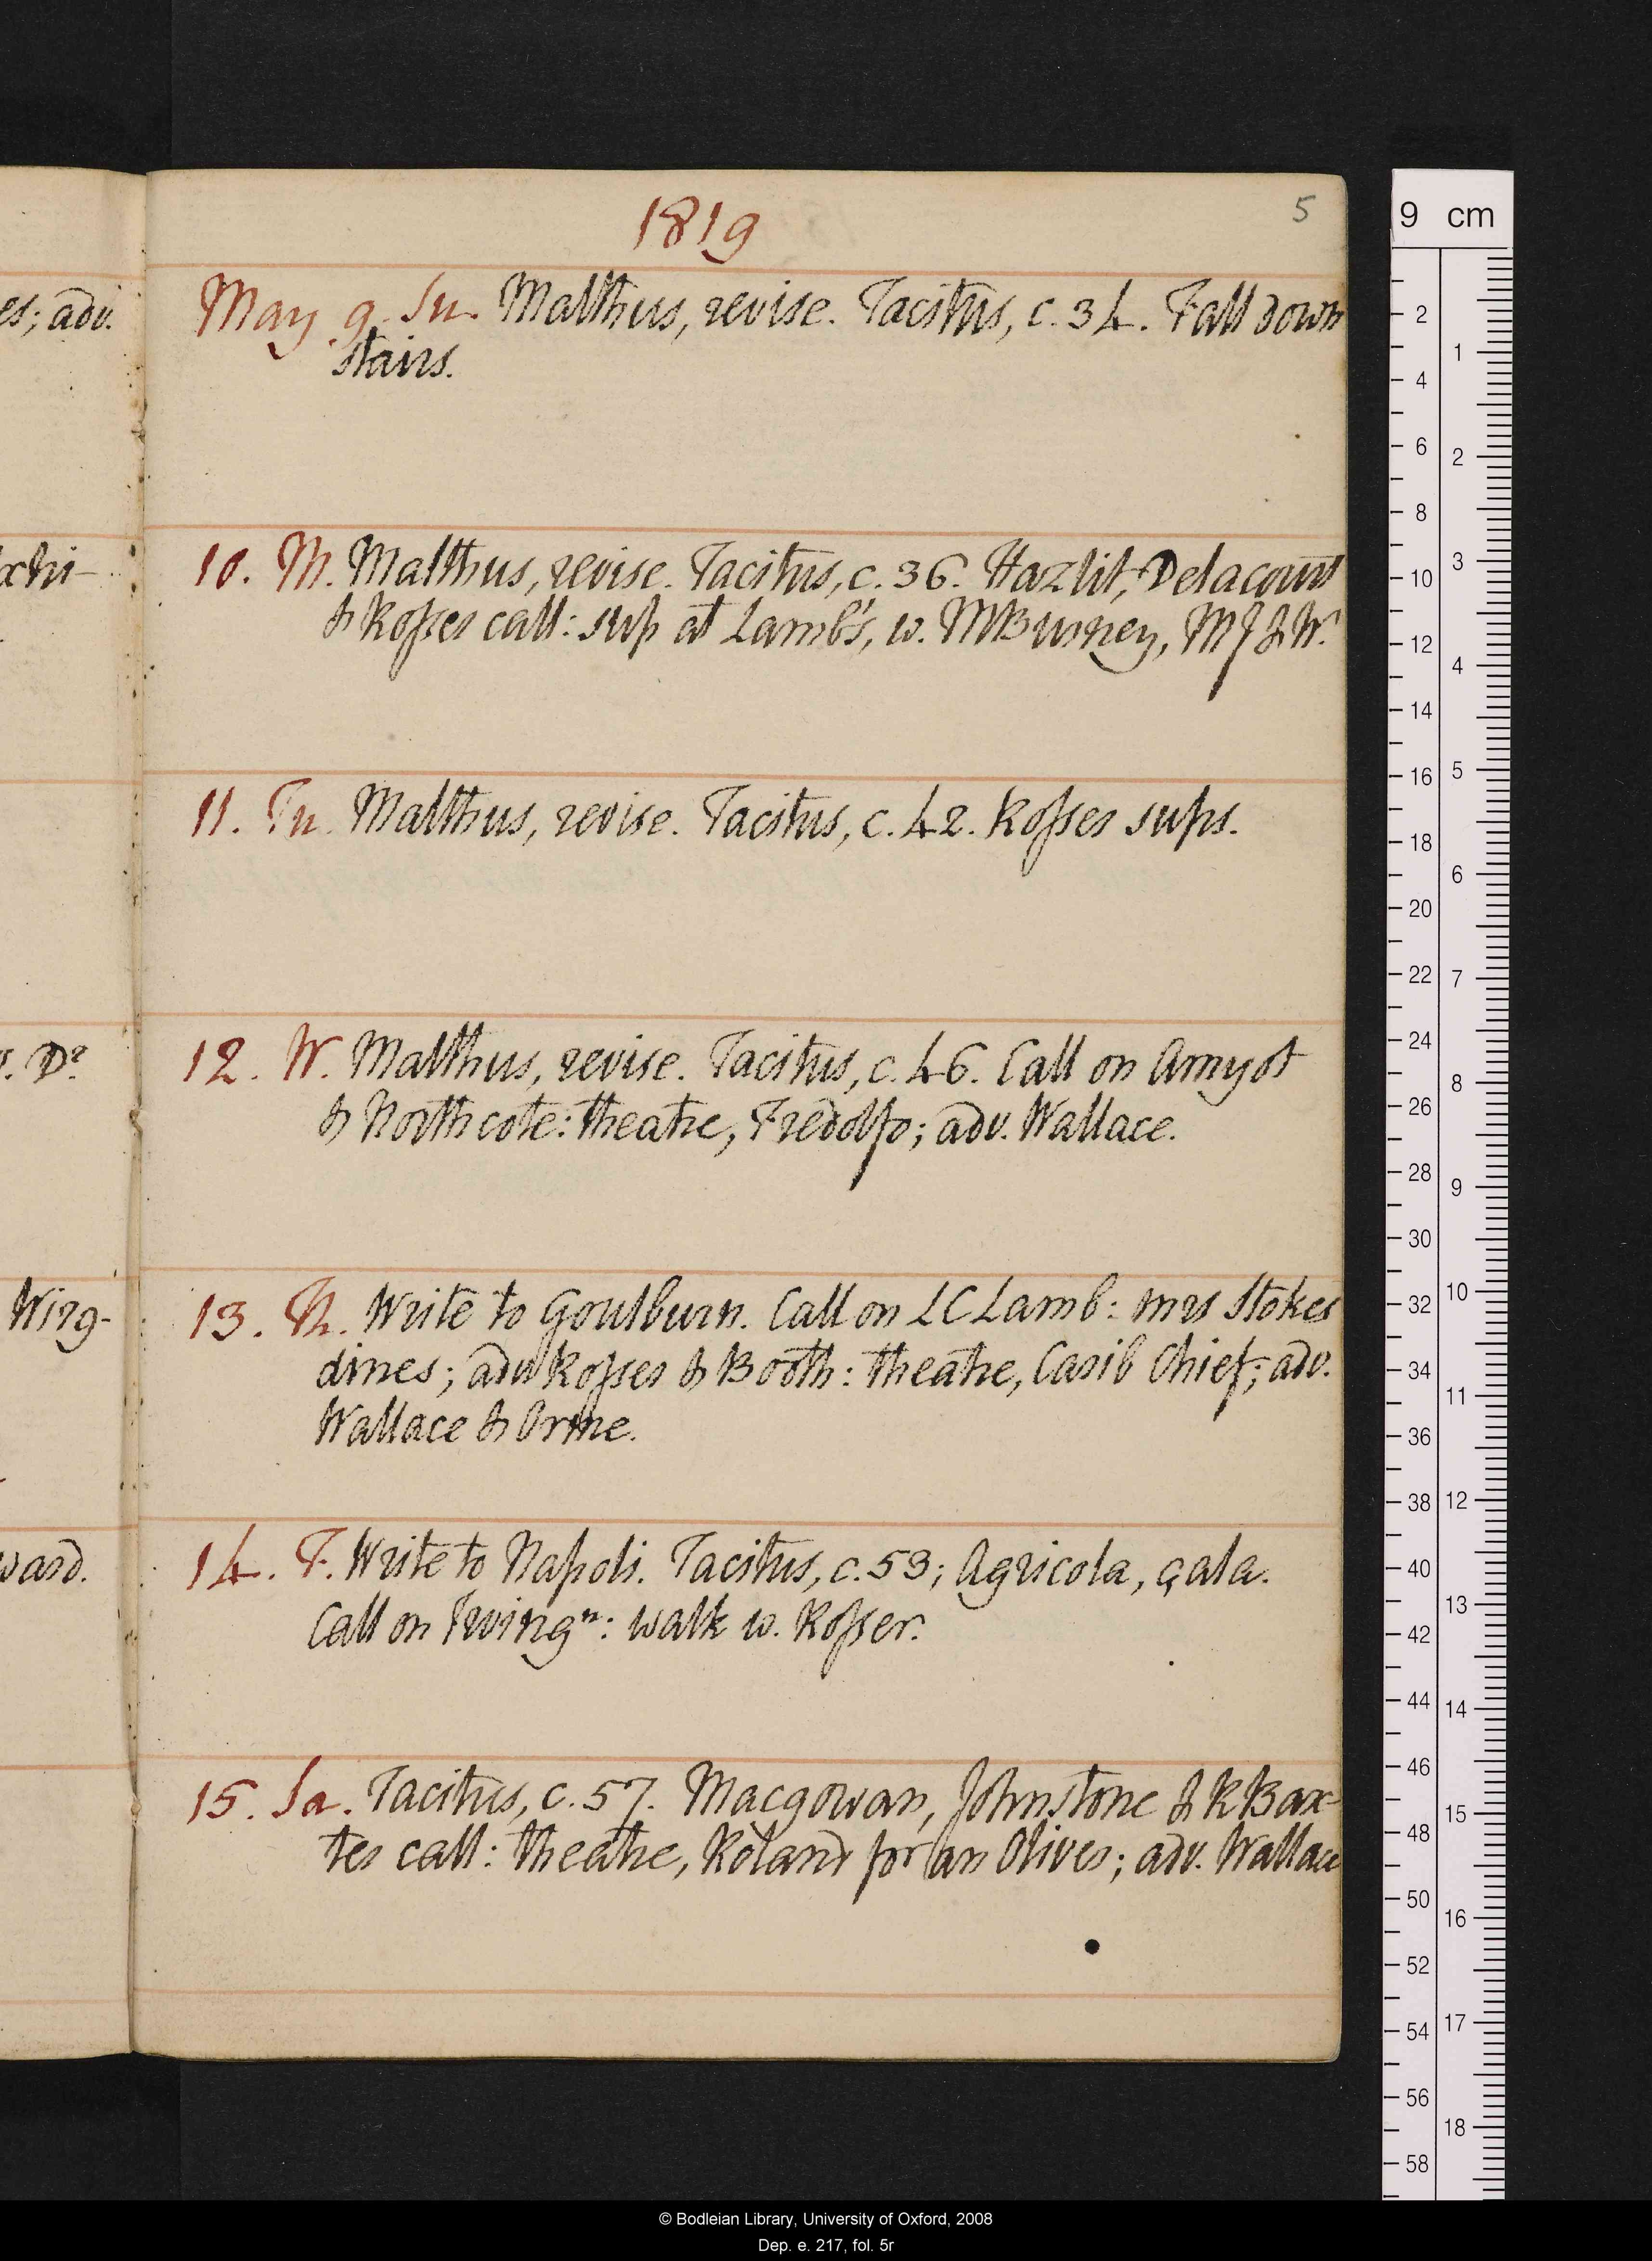 1819
5
es; adv.
May 9. Su. Malthus, revise. Tacitus, c. 34. Fall down
stairs.
xhi-
10. M. Malthus, revise. Tacitus, c. 36. Hazlit, Delacourt
& Rosser call: sup at Lamb's, w. MBurney, MJ & W.
11. Tu. Malthus, revise. Tacitus, c. 42. Rosser sups.
Do
12. W. Malthus, revise. Tacitus, c. 46. Call on Amyot
& Northcote: theatre, Fredolfo; adv. Wallace.
Wirg-
13. Th. Write to Goulburn. Call on LC Lamb: mrs Stokes
dines; adv Rosser & Booth: theatre, Carib Chief; adv.
Wallace & Orme.
ward.
14. F. Write to Napoli. Tacitus, c. 53; Agricola, çala.
Call on Irvingn: walk w. Rosser.
15. Sa. Tacitus, c. 57. Macgowan, Johnstone & R Bax-
ter call: theatre, Roland for an Oliver; adv. Wallace
9 cm
2
4
6
8
10
12
14
16
18
20
22
24
26
28
30
32
34
36
38
40
42
44
46
48
50
52
54
56
58
1
2
3
4
5
6
7
8
9
10
11
12
13
14
15
16
17
18
© Bodleian Library, University of Oxford, 2008
Dep. e. 217, fol. 5r